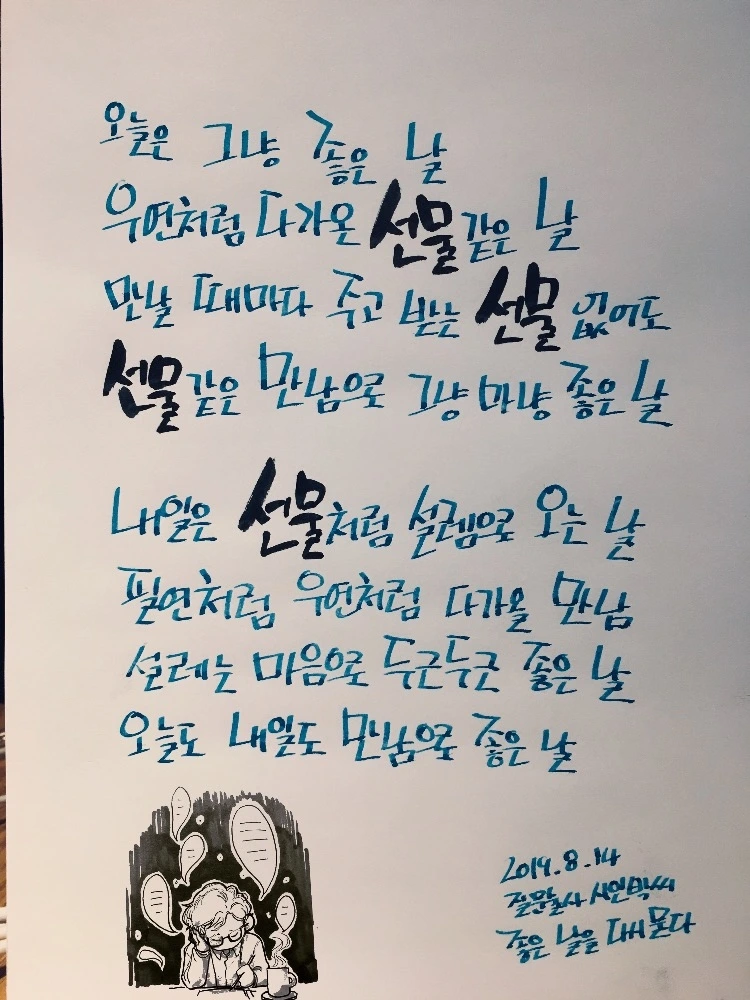 오늘은 그냥 좋은 날
우연처럼 다가온 선물같은 날
만날 때마다 주고 받는 선물 없어도
선물같은 만남으로 그냥 마냥 좋은 날
내일은 선물처럼 설렘으로 오는 날
필연처럼 우연처럼 다가올 만남
설레는 마음으로 두근두근 좋은 날
오늘도 내일도 만남으로 좋은 날
2019.8.14
질문술사 시인박씨
좋은 날을 다시 묻다